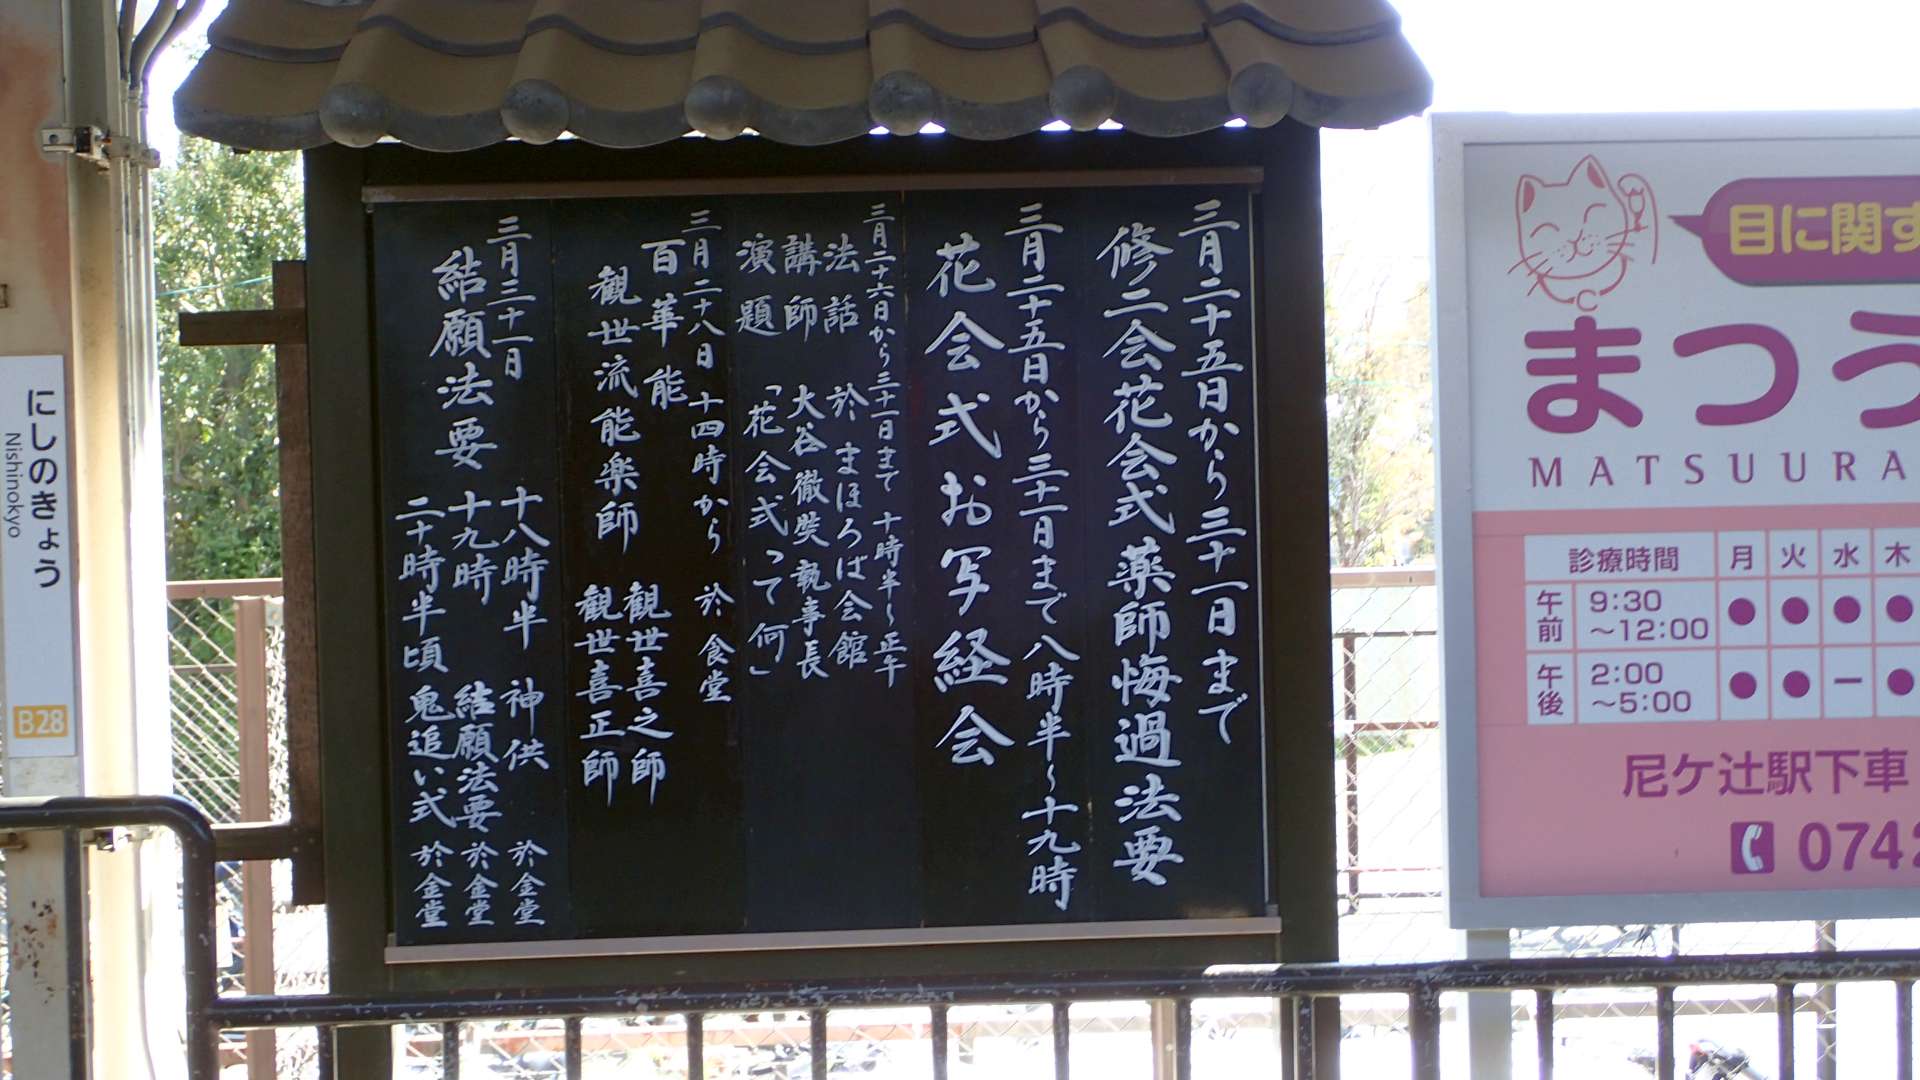 三月二十五日から三十一日まで
修二会花会式薬師悔過法要
三月二十五日から三十一日まで八時半〜十九時
花会式お写経会
三月二十六日から三十一日まで 十時半〜正午
法話 於 まほろば会館
講師 大谷徹奘執事長
演題 「花会式って何」
三月二十八日 十四時から 於 食堂
百華能
観世流能楽師 観世喜之師
観世喜正師
三月三十一日
結願法要
十八時半 神供 於金堂
十九時 結願法要 於金堂
二十時半頃 鬼追い式 於金堂
にしのきょう
Nishinokyo
B28
目に関す
まつう
MATSUURA
診療時間 月 火 水 木
午前 9:30〜12:00 ● ● ● ●
午後 2:00〜5:00 ● ● ー ●
尼ケ辻駅下車
0742